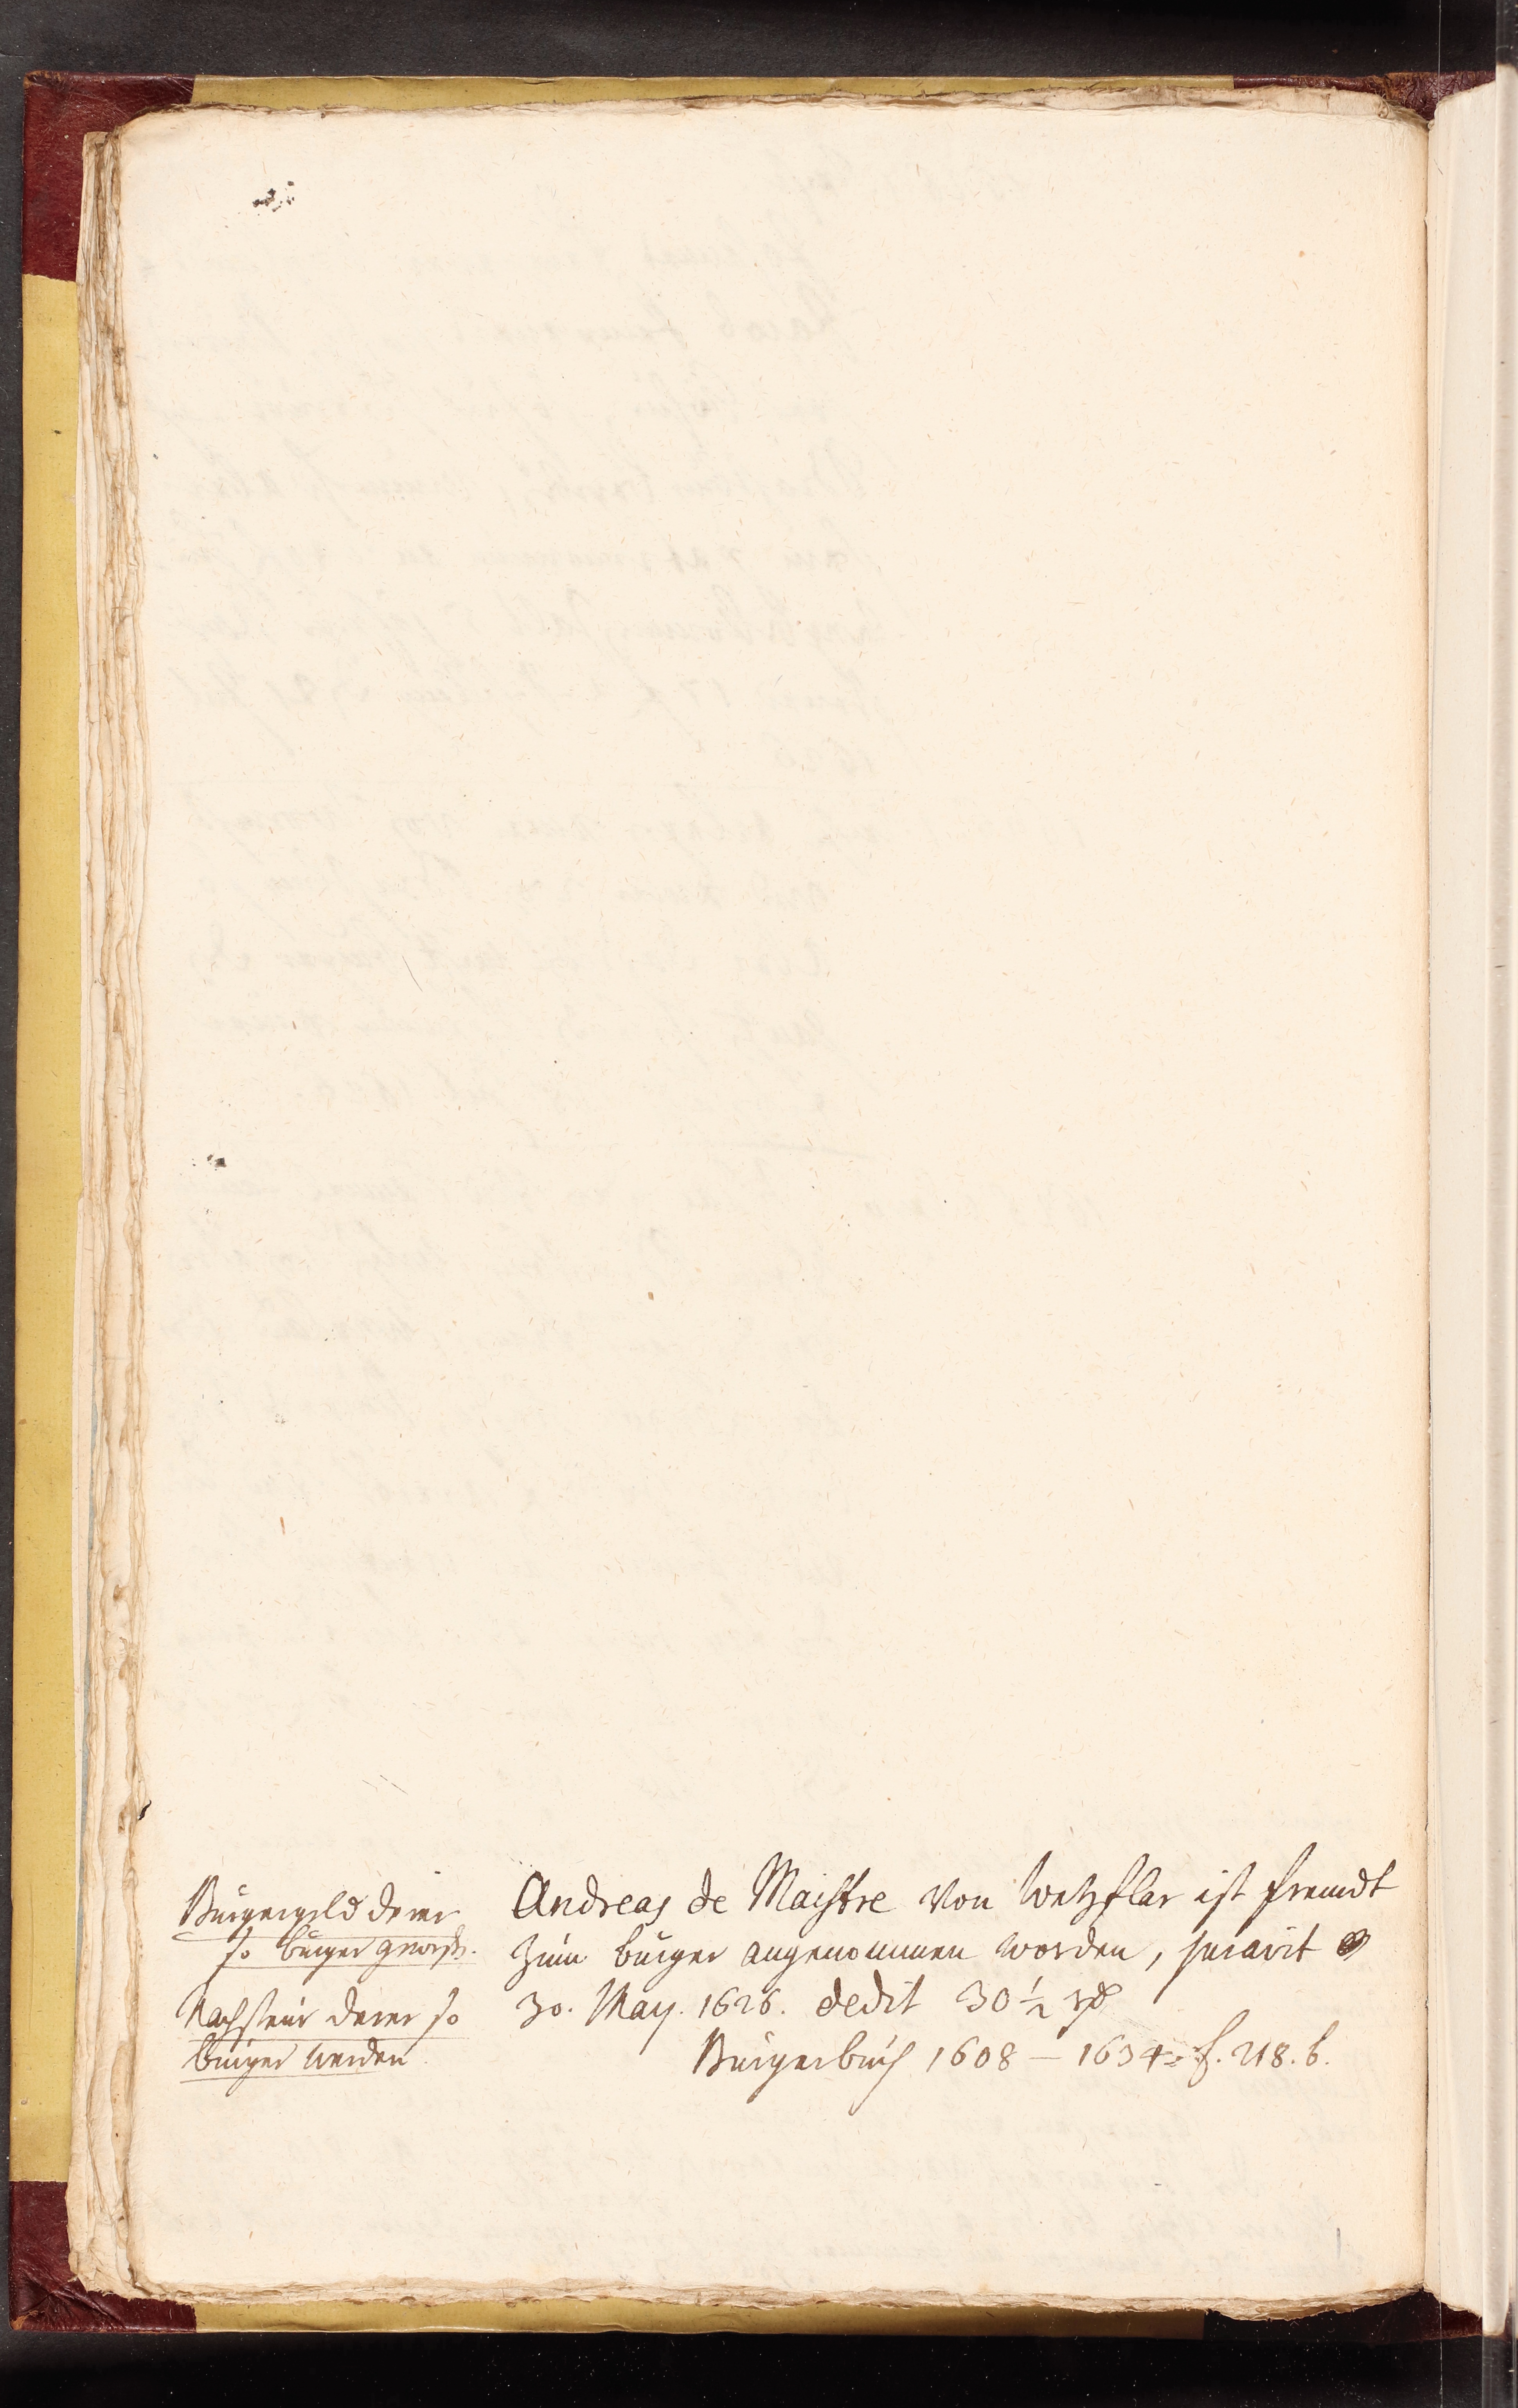 Bürgergeld derer
so bürger geword.
Nachsteur derer so
bürger werden.
Andreas de Maistre von Wetzflar ist frembt
zum bürger angenommen worden, juravit
30. May. 1626. dedit 30 1/2
Bürgerbuch 1608 – 1634. f. 218. b.